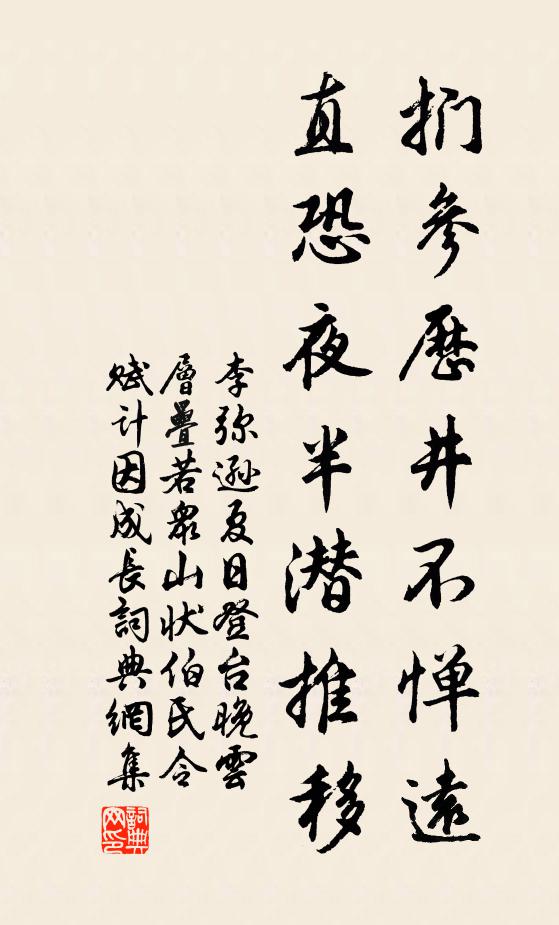 捫參歷井不憚遠
直恐夜半潛推移
李弥遜夏日登台晚雲
層疊若眾山状伯氏令
賦計因成長詞典網集
詞典网印